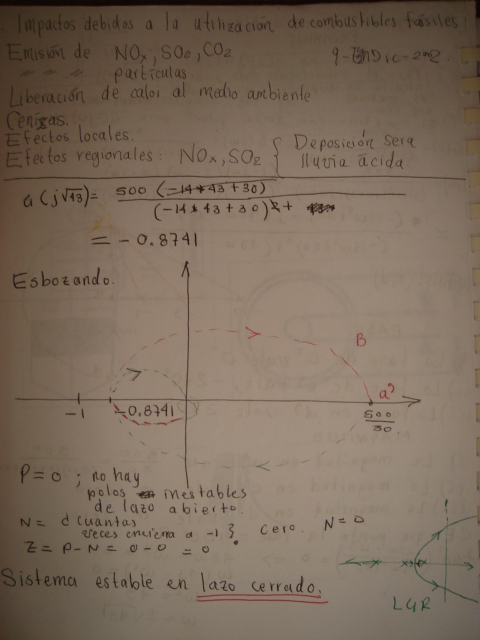 Impactos debidos a la utilización de combustibles fósiles:
Emisión de NOx, SO2, CO2
" " " partículas.
Liberación de calor al medio ambiente
Cenizas.
Efectos locales.
Efectos regionales: NOx, SO2 { Deposición seca
lluvia ácida
a(j√43) = 500(-14*43+30)
(-14*43+30)2+
= -0.8741
Esbozando.
B
a'
-1
-0.8741
500
30
P=0 ; no hay
polos inestables
de lazo abierto.
N= ¿cuantas
veces encierra a -1} cero. N=0
Z = P-N = 0-0 = 0.
Sistema estable en lazo cerrado.
LGR